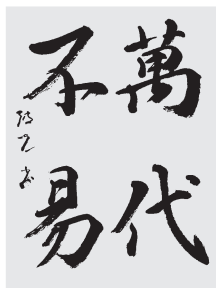 萬代
不易